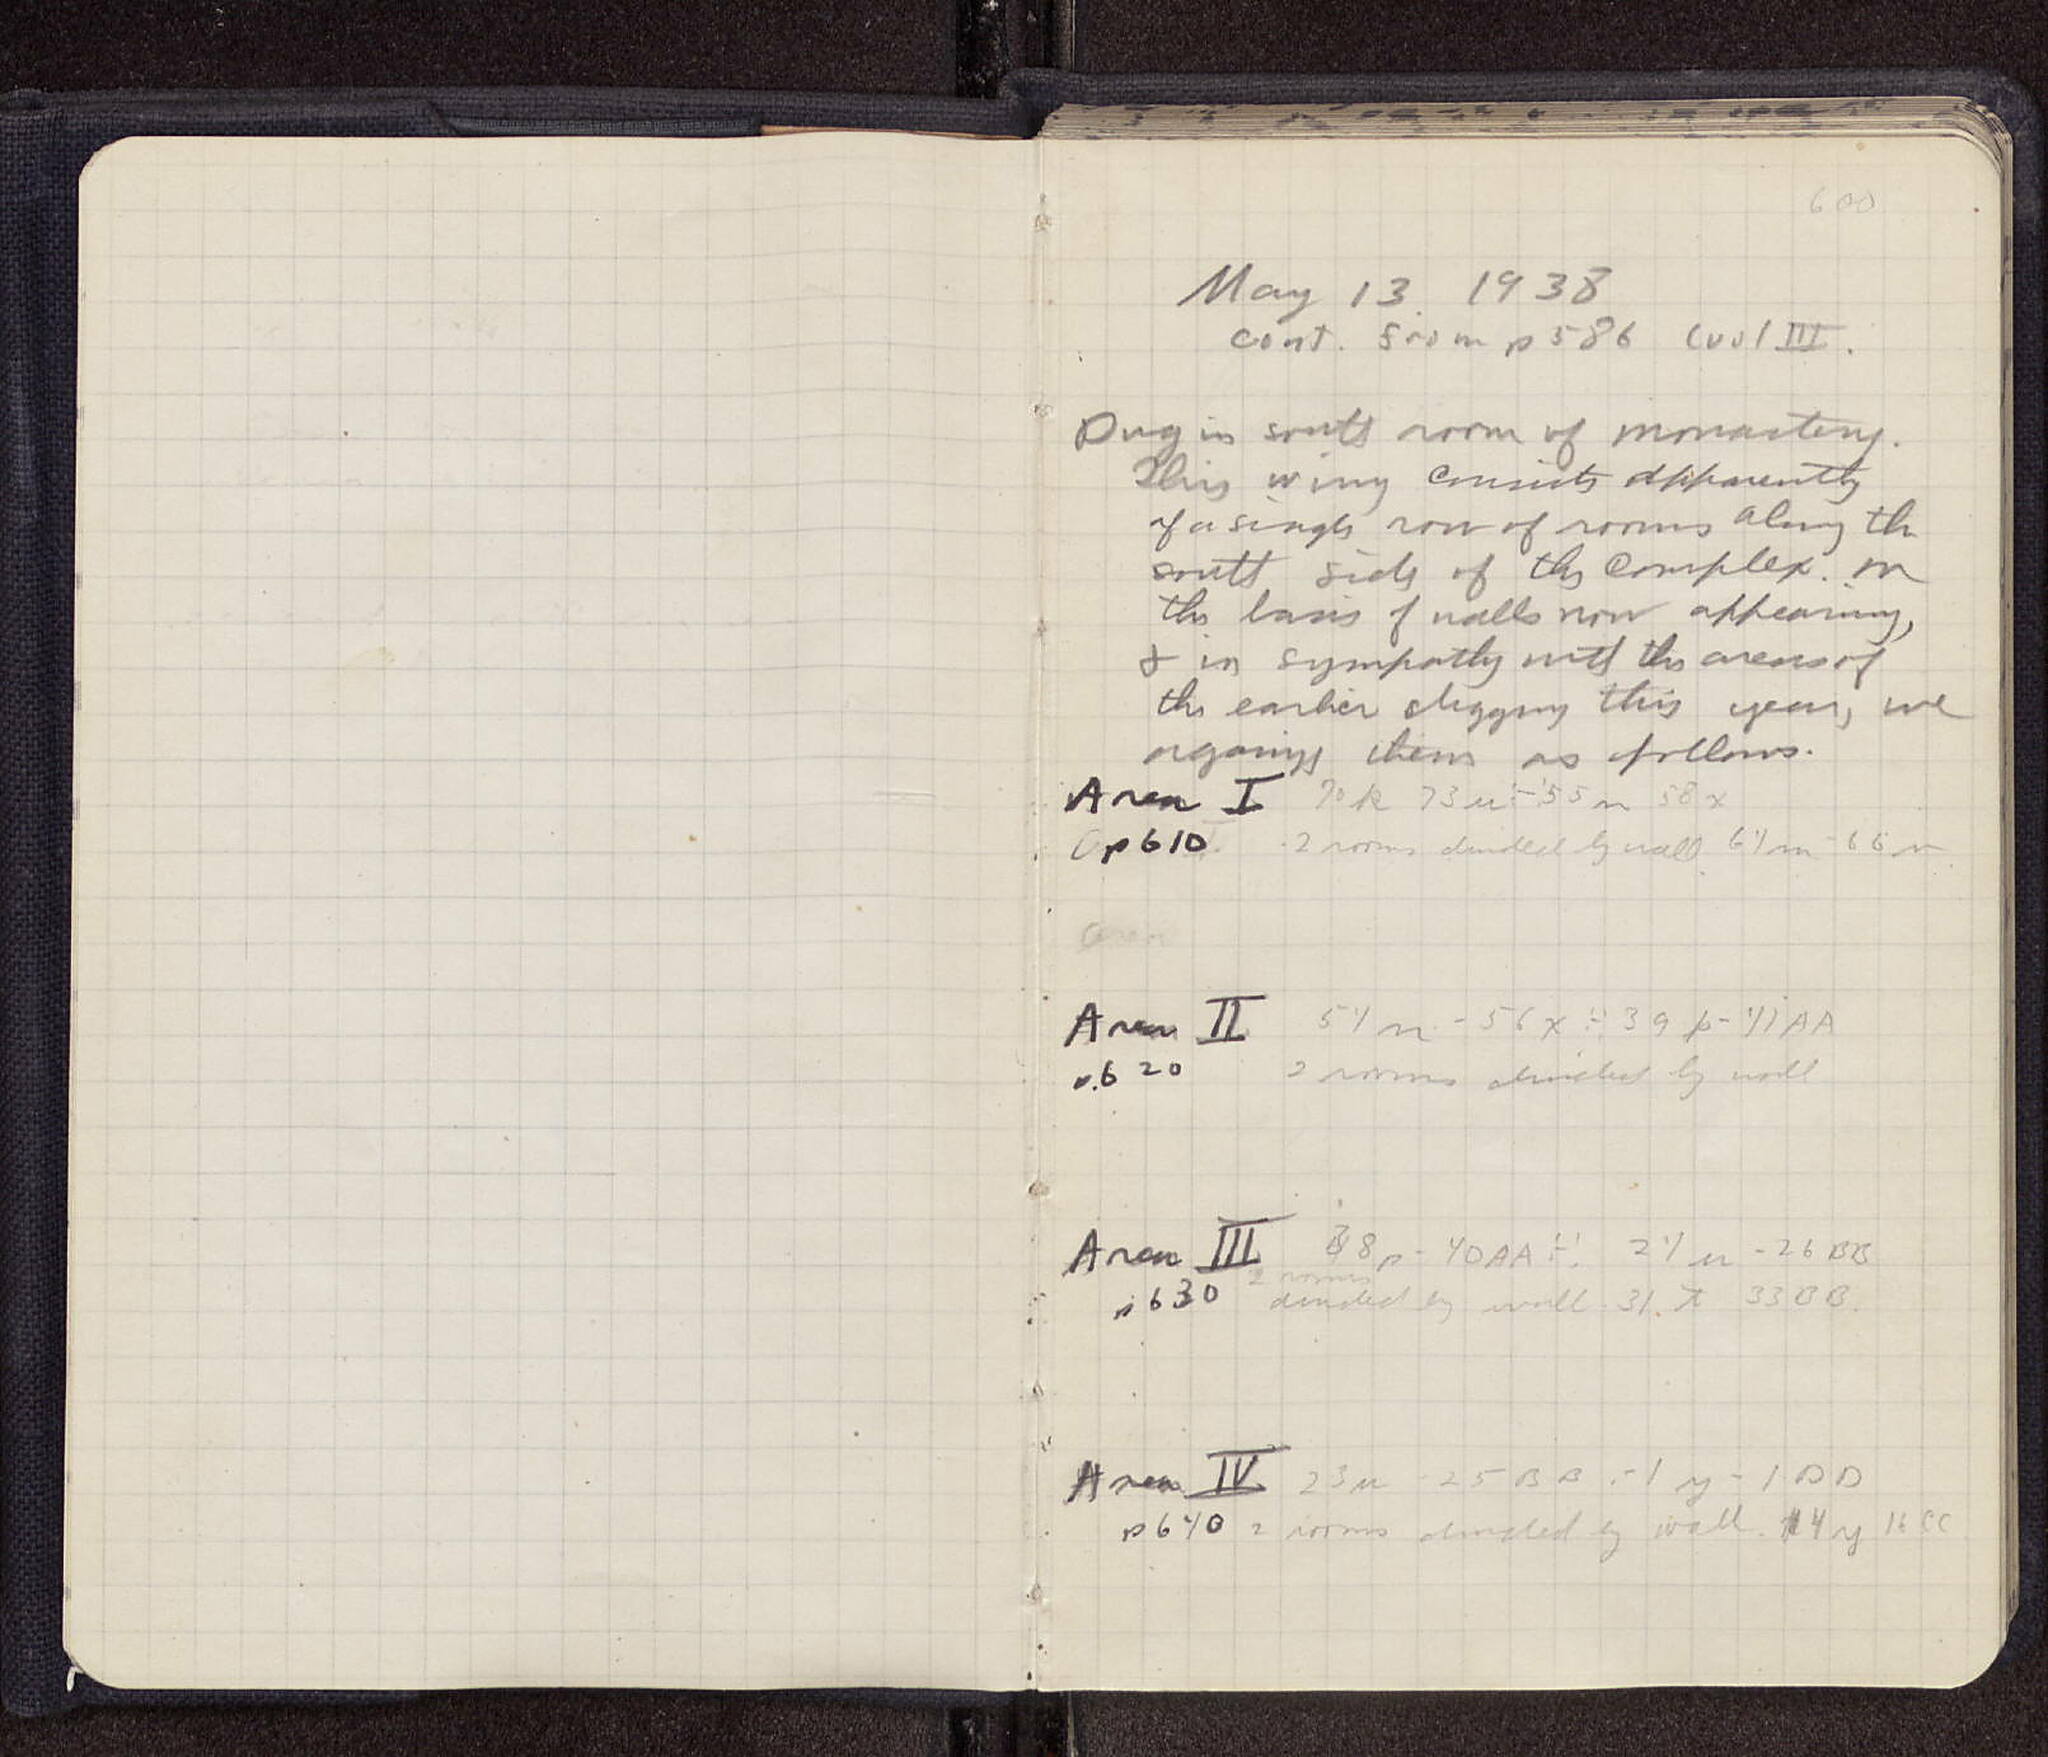 600
May 13. 1938
cont. from p 586 (vol III.
Dug in south room of monastery.
This wing consists apparently
of a single row of rooms along the
south side of the complex. On
the basis of walls now appearing,
& in sympathy with the areas of
the earlier digging this year, we
organize them as follows.
Area I 70 k 73 u ÷ 55 n 58 x
p 610. 2 rooms divided by wall 64 m - 66 v
Area
Area II 54 n - 56 x ÷ 39 p - 41 AA
p. 620 2 rooms divided by wall
Area III 38 p - 40 AA ÷ 24 u - 26 BB
2 rooms
p 630 divided by wall 31 t 33 BB.
Area IV 23 u - 25 BB ÷ 1 y - 1 DD
p 640 2 rooms divided by wall. 14 y 16 CC